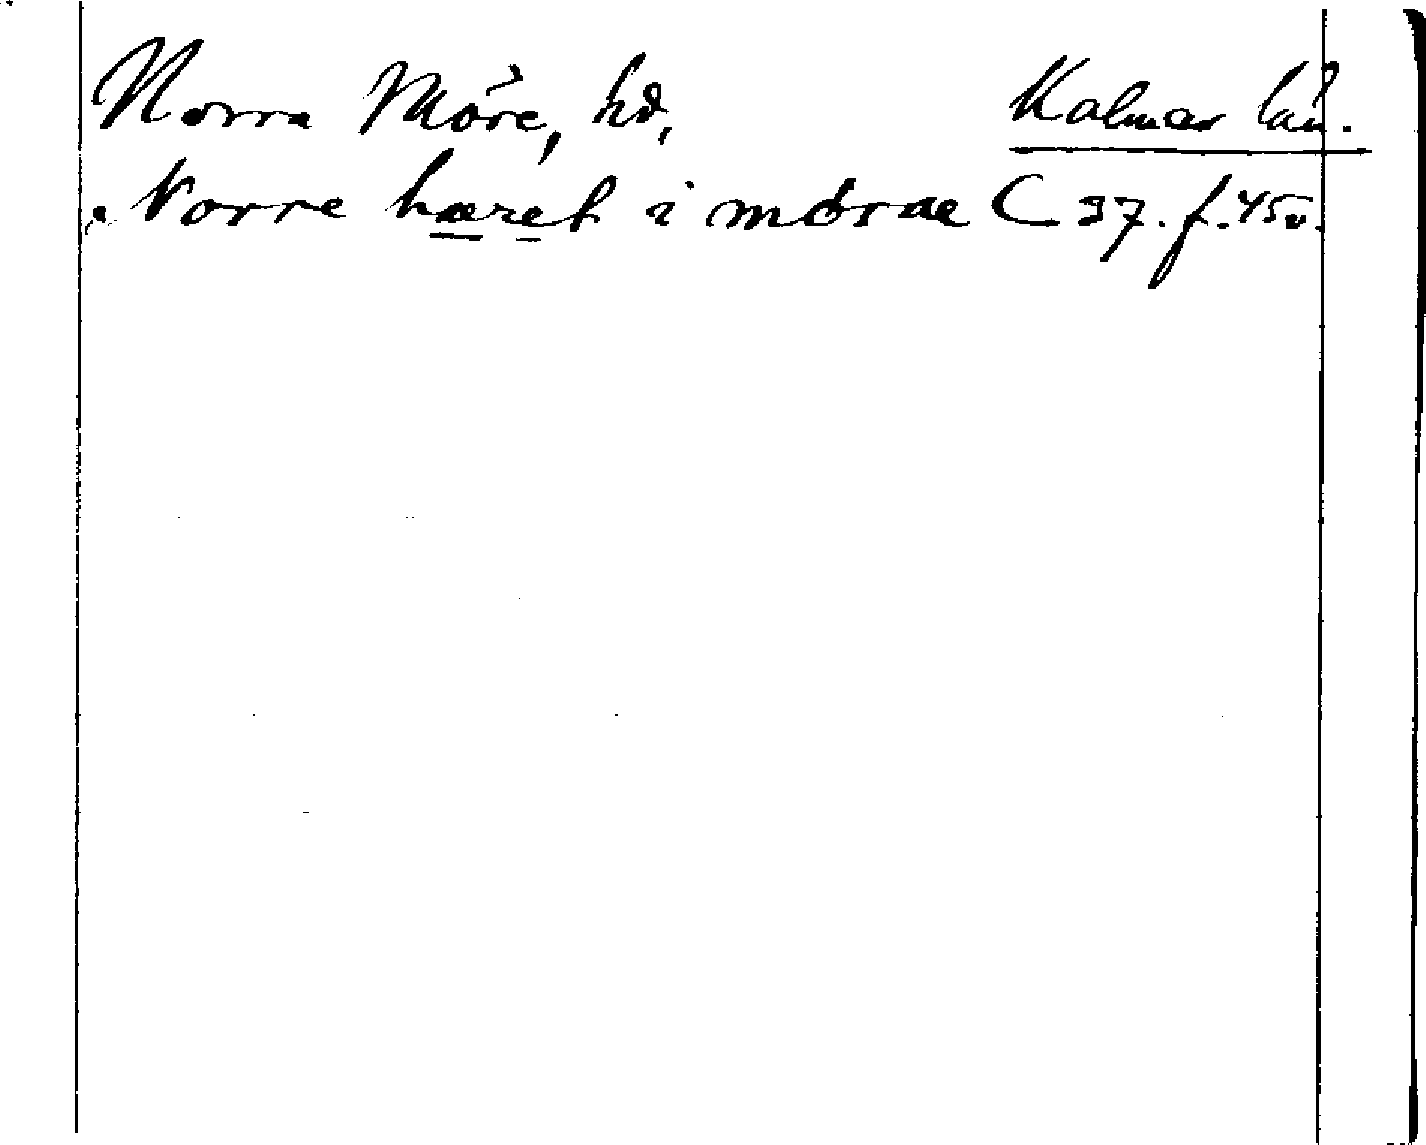 Norra Möre, hd, Kalmar län.
Norre hæret i mörae C 37. f. 45v.